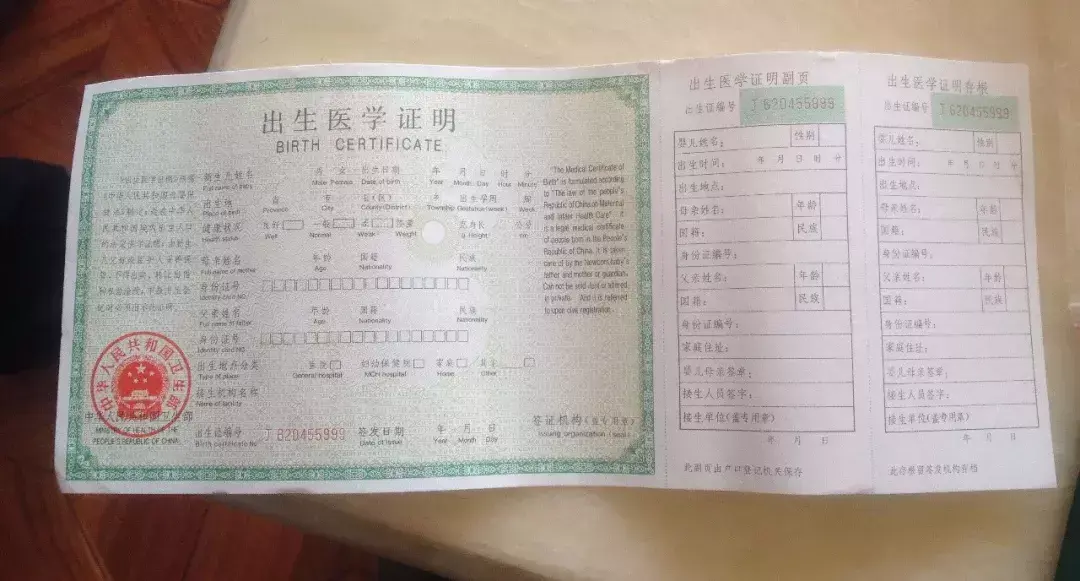 出生医学证明
BIRTH CERTIFICATE
新生儿姓名 男 女 出生日期 年 月 日 时 分
Full name of baby Male Female Date of birth Year Month Day Hour Minute
出生地 省 市 县(区) 乡 出生孕周 周
Place of birth Province City County(District) Township Gestation(week) Week
健康状况 良好 一般 差 体重 克 身长 公分
Health status Well Normal Weak Weight g Height cm
母亲姓名 年龄 国籍 民族
Full name of mother Age Nationality Nationality
身份证号
Identity card NO
父亲姓名 年龄 国籍 民族
Full name of father Age Nationality Nationality
身份证号
Identity card NO
出生地点分类 医院 妇幼保健院 家庭 其它
Type of place General hospital MCH hospital Home Other
接生机构名称
Name of facility
出生证编号 J 820455999 签发日期 年 月 日
Birth certificate No Date of issue Year Month Day
签证机构(盖专用章)
Issuing organization (seal)
"The Medical Certificate of
Birth" is formulated according
to "The law of the people's
Republic of China on Maternal
and Infant Health Care". It
is a legal medical certificate
of people born in the People's
Republic of China. It is taken
care of by the Newborn baby's
father and mother or guardian.
Can not be sold, lent or altered
in private. And it is referred
to upon civil registration.
中华人民共和国卫生部
中华人民共和国卫生部
MINISTRY OF HEALTH OF THE
PEOPLE'S REPUBLIC OF CHINA
出生医学证明副页
出生证编号 J 820455999
婴儿姓名: 性别
出生时间: 年 月 日 时 分
出生地点:
母亲姓名: 年龄
国籍: 民族
身份证编号:
父亲姓名: 年龄
国籍: 民族
身份证编号:
家庭住址:
婴儿母亲签章:
接生人员签字:
接生单位(盖专用章)
年 月 日
此副页由户口登记机关保存
出生医学证明存根
出生证编号 J 820455999
婴儿姓名: 性别
出生时间: 年 月 日 时 分
出生地点:
母亲姓名: 年龄
国籍: 民族
身份证编号:
父亲姓名: 年龄
国籍: 民族
身份证编号:
家庭住址:
婴儿母亲签章:
接生人员签字:
接生单位(盖专用章)
年 月 日
此存根留签发机构存档